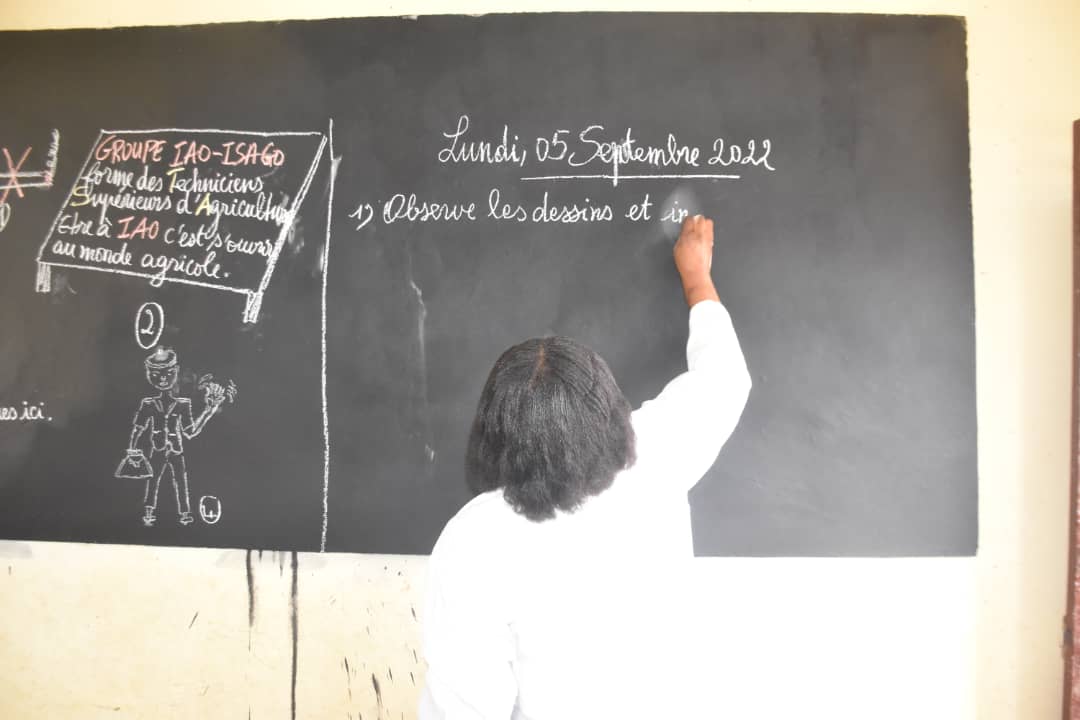 GROUPE IAO-ISAGO
forme des Techniciens
Supérieurs d'Agriculture
Etre à IAO c'est s'ouvrir
au monde agricole.
2
es ici.
4
Lundi, 05 Septembre 2022
1) Observe les dessins et in